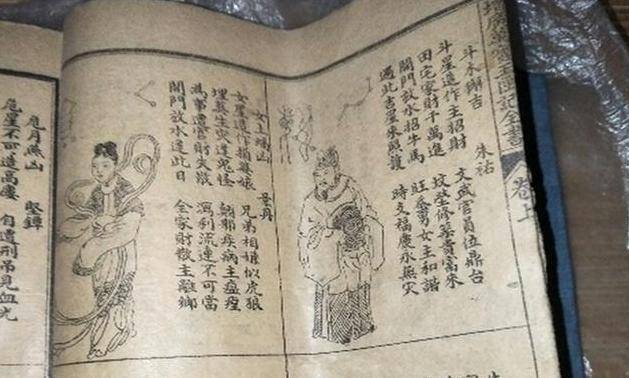 增廣萬寶玉匣記全書
卷上
斗木獬吉 朱祐
斗星造作主招財 文武官員位鼎台
田宅家財千萬進 墳塋修築貴富來
開門放水招牛馬 旺蚕男女主和諧
遇此吉星來照護 時支福慶永無灾
女土蝠凶 景丹
女星造作損嬌娘 兄弟相嫌似虎狼
埋葬生灾逢鬼怪 顛邪疾病主瘟
為事遭官財失散 瀉利流連不可當
開門放水逢此日 全家財散主離鄉
危月燕凶 堅鐔
危星不可造高樓 自遭刑吊見血光